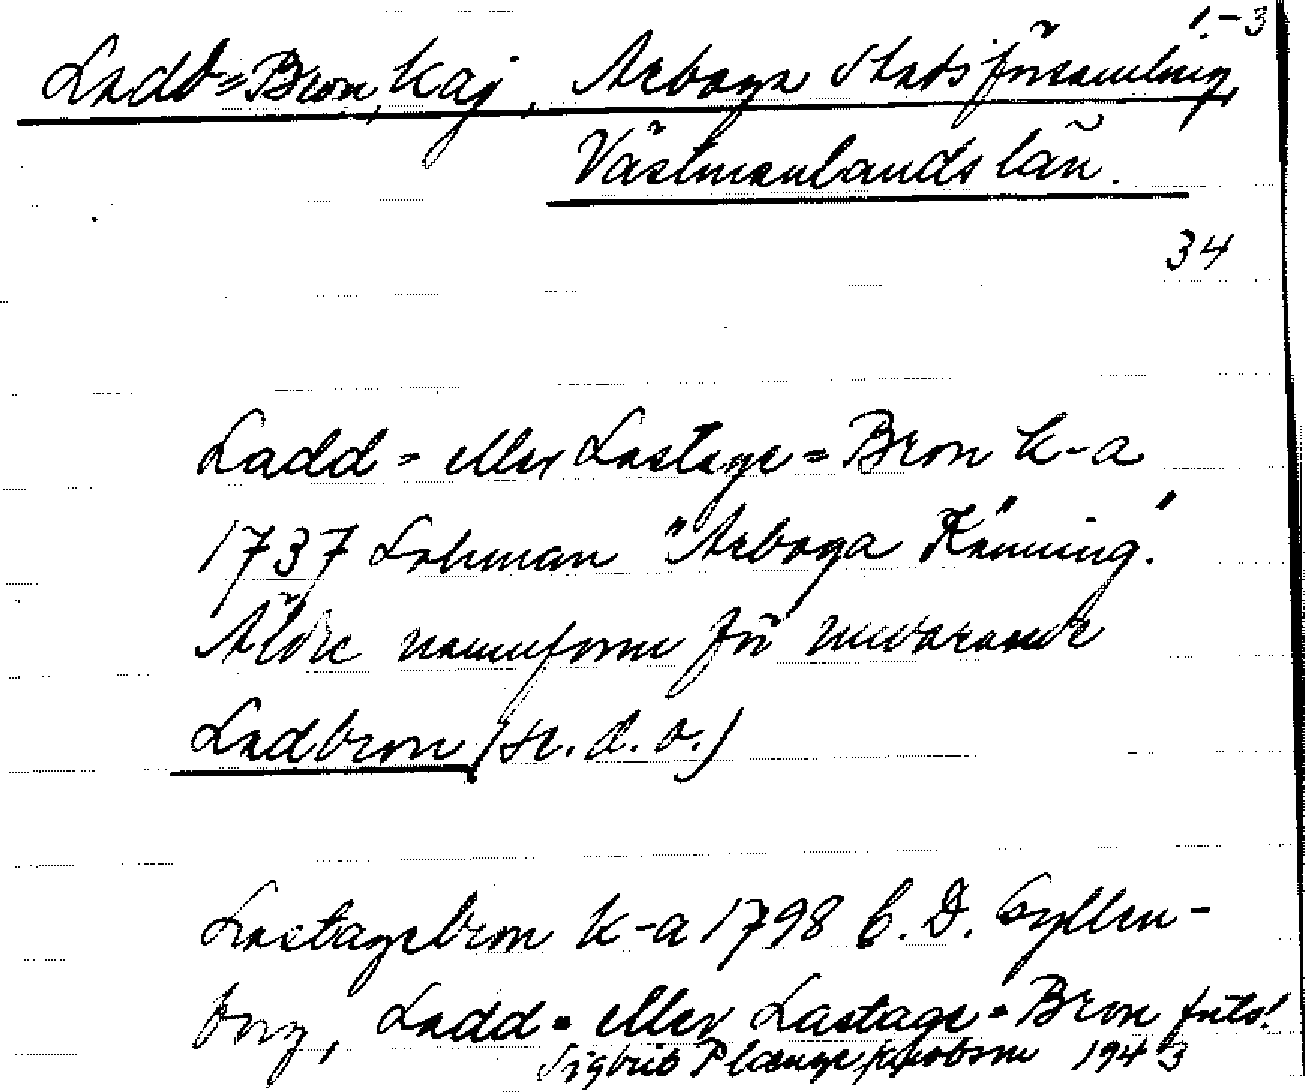 1.-3
Ladd=Bron, kaj, Arboga Stadsförsamling,
Västmanlands län.
34
Ladd= eller Lastage=Bron k-a
1737 Lohman "Arboga Känning."
Äldre namnform för nuvarande
Ladbron (se. d. o.)
Lastagebron k-a 1798 C. D. Gyllen-
borg, Ladd= eller Lastage=Bron
Sigbrit Plænge 1943